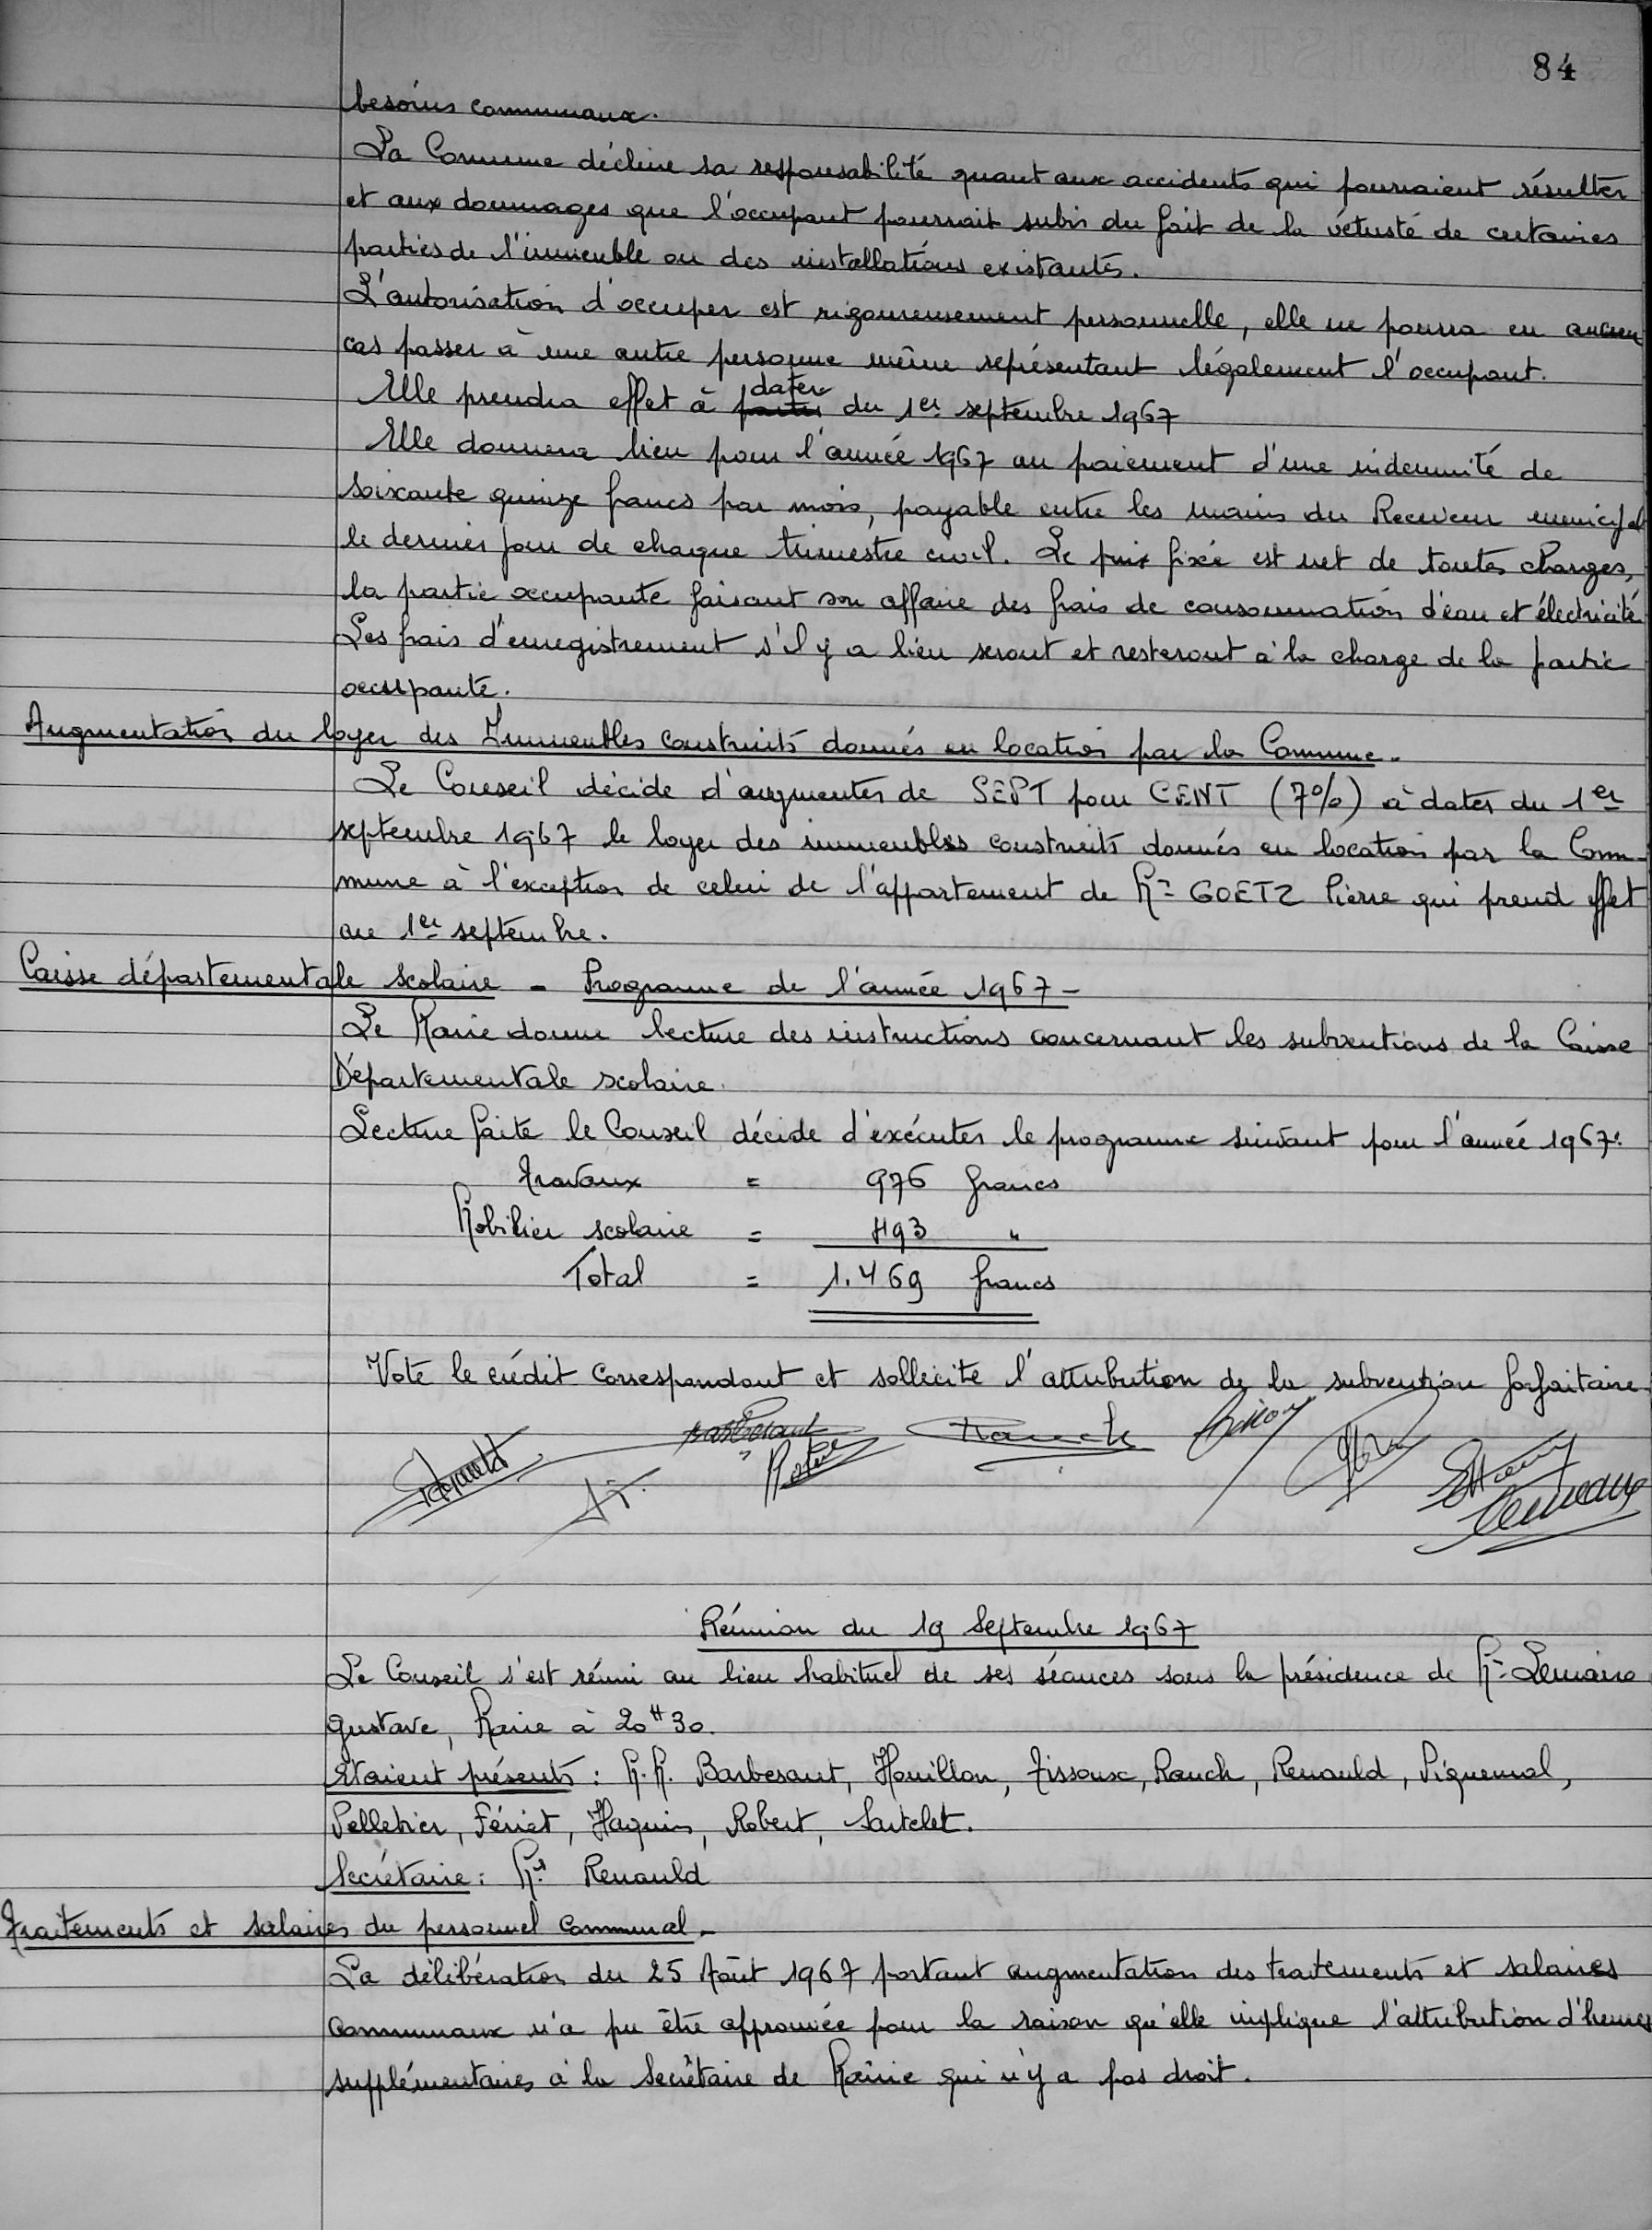 84
besoins communaux.
La Commune décline sa responsabilité quant aux accidents qui pourraient résulter
et aux dommages que l'occupant pourrait subir du fait de la vétusté de certaines
parties de l'immeuble ou des installations existantes.
L'autorisation d'occuper est rigoureusement personnelle, elle ne pourra en aucun
cas passer à une autre personne même représentant légalement l'occupant.
Elle prendra effet à partir dater du 1er septembre 1967
Elle donnera lieu pour l'année 1967 au paiement d'une indemnité de
soixante quinze francs par mois, payable entre les mains du Receveur municipal
le dernier jour de chaque trimestre civil. Le prix fixé est net de toutes charges,
la partie occupante faisant son affaire des frais de consommation d'eau et électricité
Les frais d'enregistrement s'il y a lieu seront et resteront à la charge de la partie
occupante.
Augmentation du loyer des Immeubles construits donnés en location par la Commune.
Le Conseil décide d'augmenter de SEPT pour CENT (7%) à dater du 1er
septembre 1967 le loyer des immeubles construits donnés en location par la Com-
mune à l'exception de celui de l'appartement de Mr GOETZ Pierre qui prend effet
au 1er septembre.
Caisse départementale scolaire - Programme de l'année 1967 -
Le Maire donne lecture des instructions concernant les subventions de la Caisse
Départementale scolaire.
Lecture faite le Conseil décide d'exécuter le programme suivant pour l'année 1967:
Travaux = 976 francs
Mobilier scolaire = 493 "
Total = 1.469 francs
Vote le crédit correspondant et sollicite l'attribution de la subvention forfaitaire.
Réunion du 19 Septembre 1967
Le Conseil s'est réuni au lieu habituel de ses séances sous la présidence de Mr Lemaire
Gustave, Maire à 20H30.
Etaient présents : M.M. Barbesant, Houillon, Tissoux, Rauch, Renauld, Piquemal,
Pelletier, Fériet, Haquin, Robert, Sartelet.
Secrétaire : Mr Renauld
Traitements et salaires du personnel communal.
La délibération du 25 Août 1967 portant augmentation des traitements et salaires
communaux n'a pu être approuvée pour la raison qu'elle implique l'attribution d'heures
supplémentaires à la Secrétaire de Mairie qui n'y a pas droit.